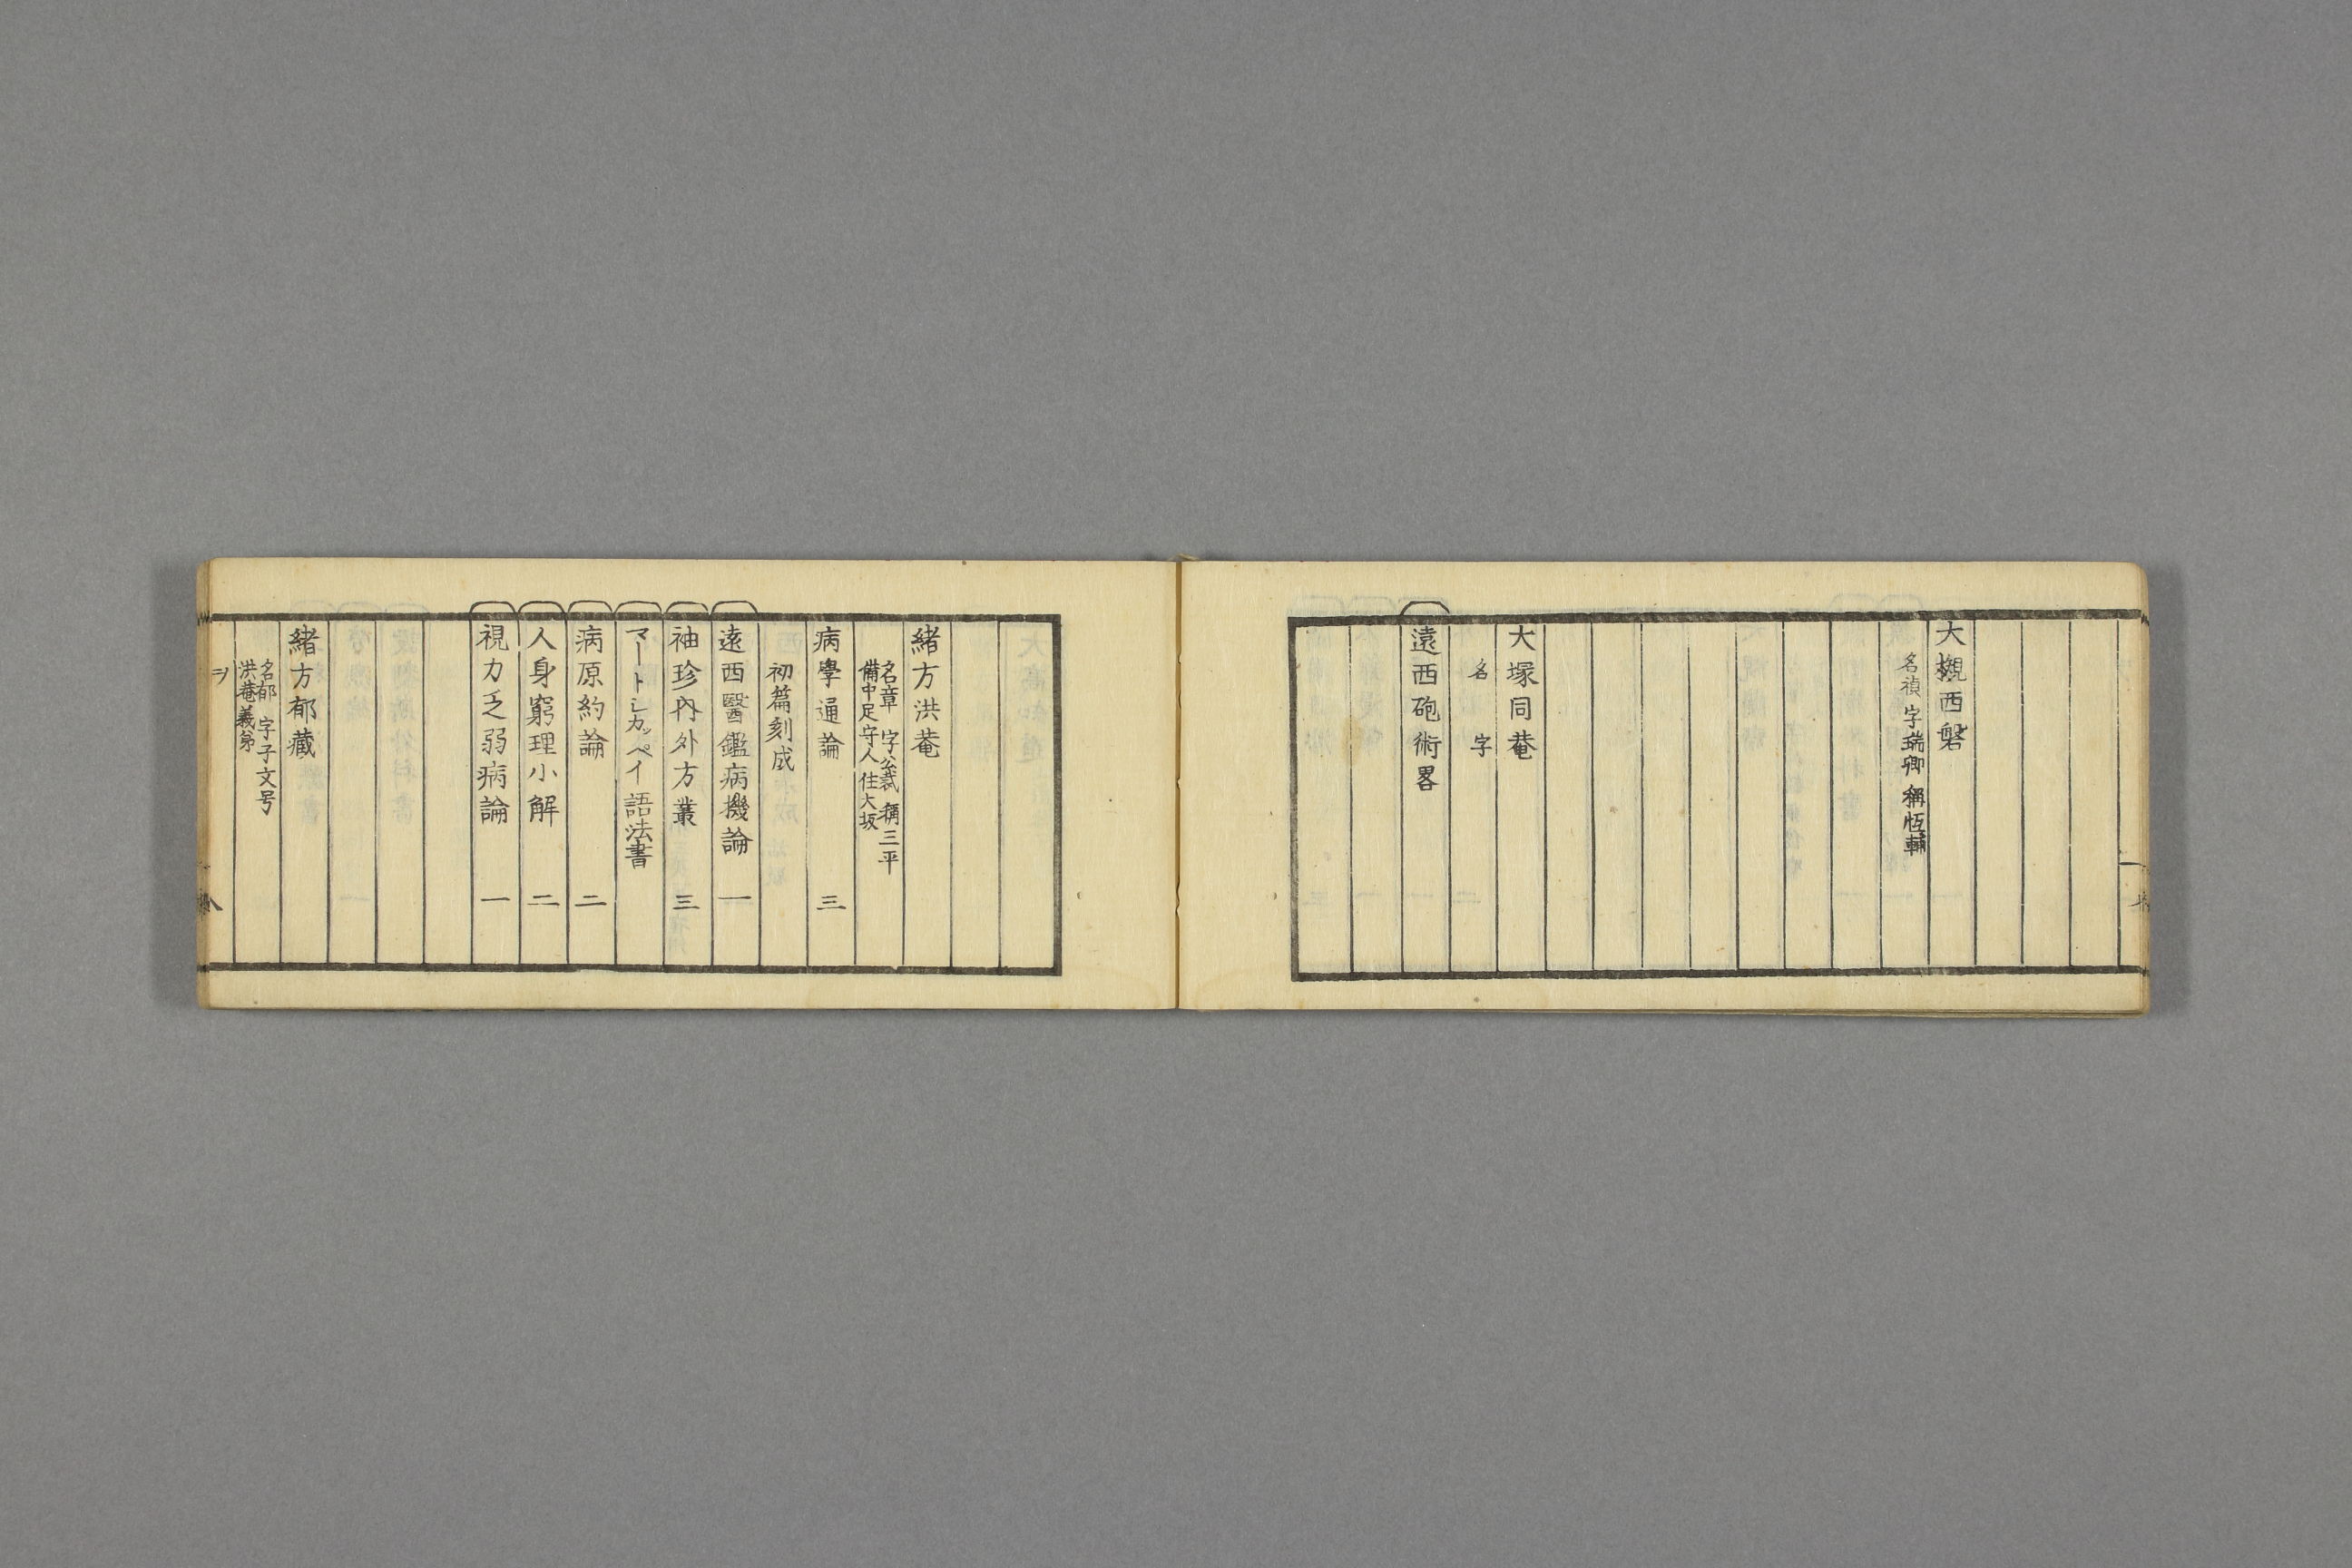 大槻西磐
名禎 字瑞卿 稱恆輔
大塚同菴
名 字
遠西砲術畧
緒方洪菴
名章 字公裁 稱三平
備中足守人 住大坂
病學通論 三
初篇刻成
遠西醫鑑病機論 一
袖珍內外方叢 三
マートシカッペイ語法書
病原約論 二
人身窮理小解 二
視力乏弱病論 一
緒方郁藏
名郁 字子文号
洪菴義弟
ヲ
八